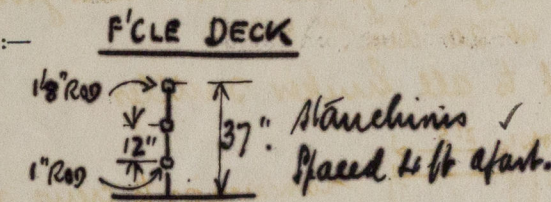 :—
F'CLE DECK
1⅛" ROD
12"
1" ROD
37".
Stanchions ✓
Spaced 4 ft apart.